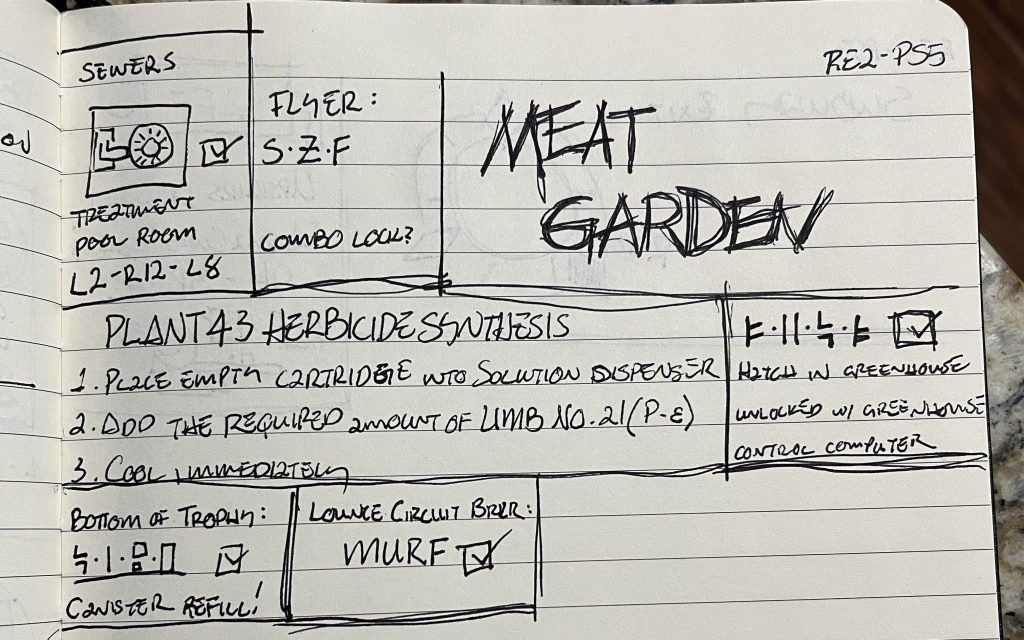 RE2-PS5
SEWERS
TREATMENT
POOL ROOM
L2-R12-L8
FLYER:
S·Z·F
COMBO LOCK?
MEAT
GARDEN
PLANT 43 HERBICIDE SYNTHESIS
1. PLACE EMPTY CARTRIDGE INTO SOLUTION DISPENSER
2. ADD THE REQUIRED AMOUNT OF UMB NO. 21 (P-ε)
3. COOL IMMEDIATELY
HATCH IN GREENHOUSE
UNLOCKED W/ GREENHOUSE
CONTROL COMPUTER
BOTTOM OF TROPHY:
CANISTER REFILL!
LOUNGE CIRCUIT BRKR:
MURF